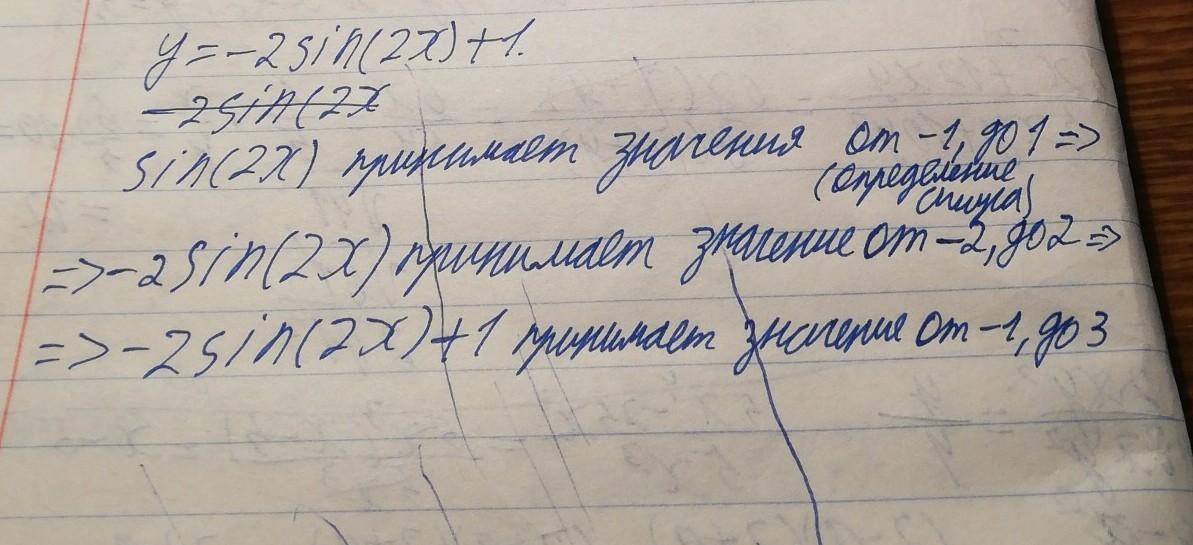 y=-2sin(2x)+1.
-2sin(2x
sin(2x) принимает значения от -1, до 1 =>
(определение
синуса)
=> -2sin(2x) принимает значение от -2, до 2 =>
=> -2sin(2x)+1 принимает значение от -1, до 3